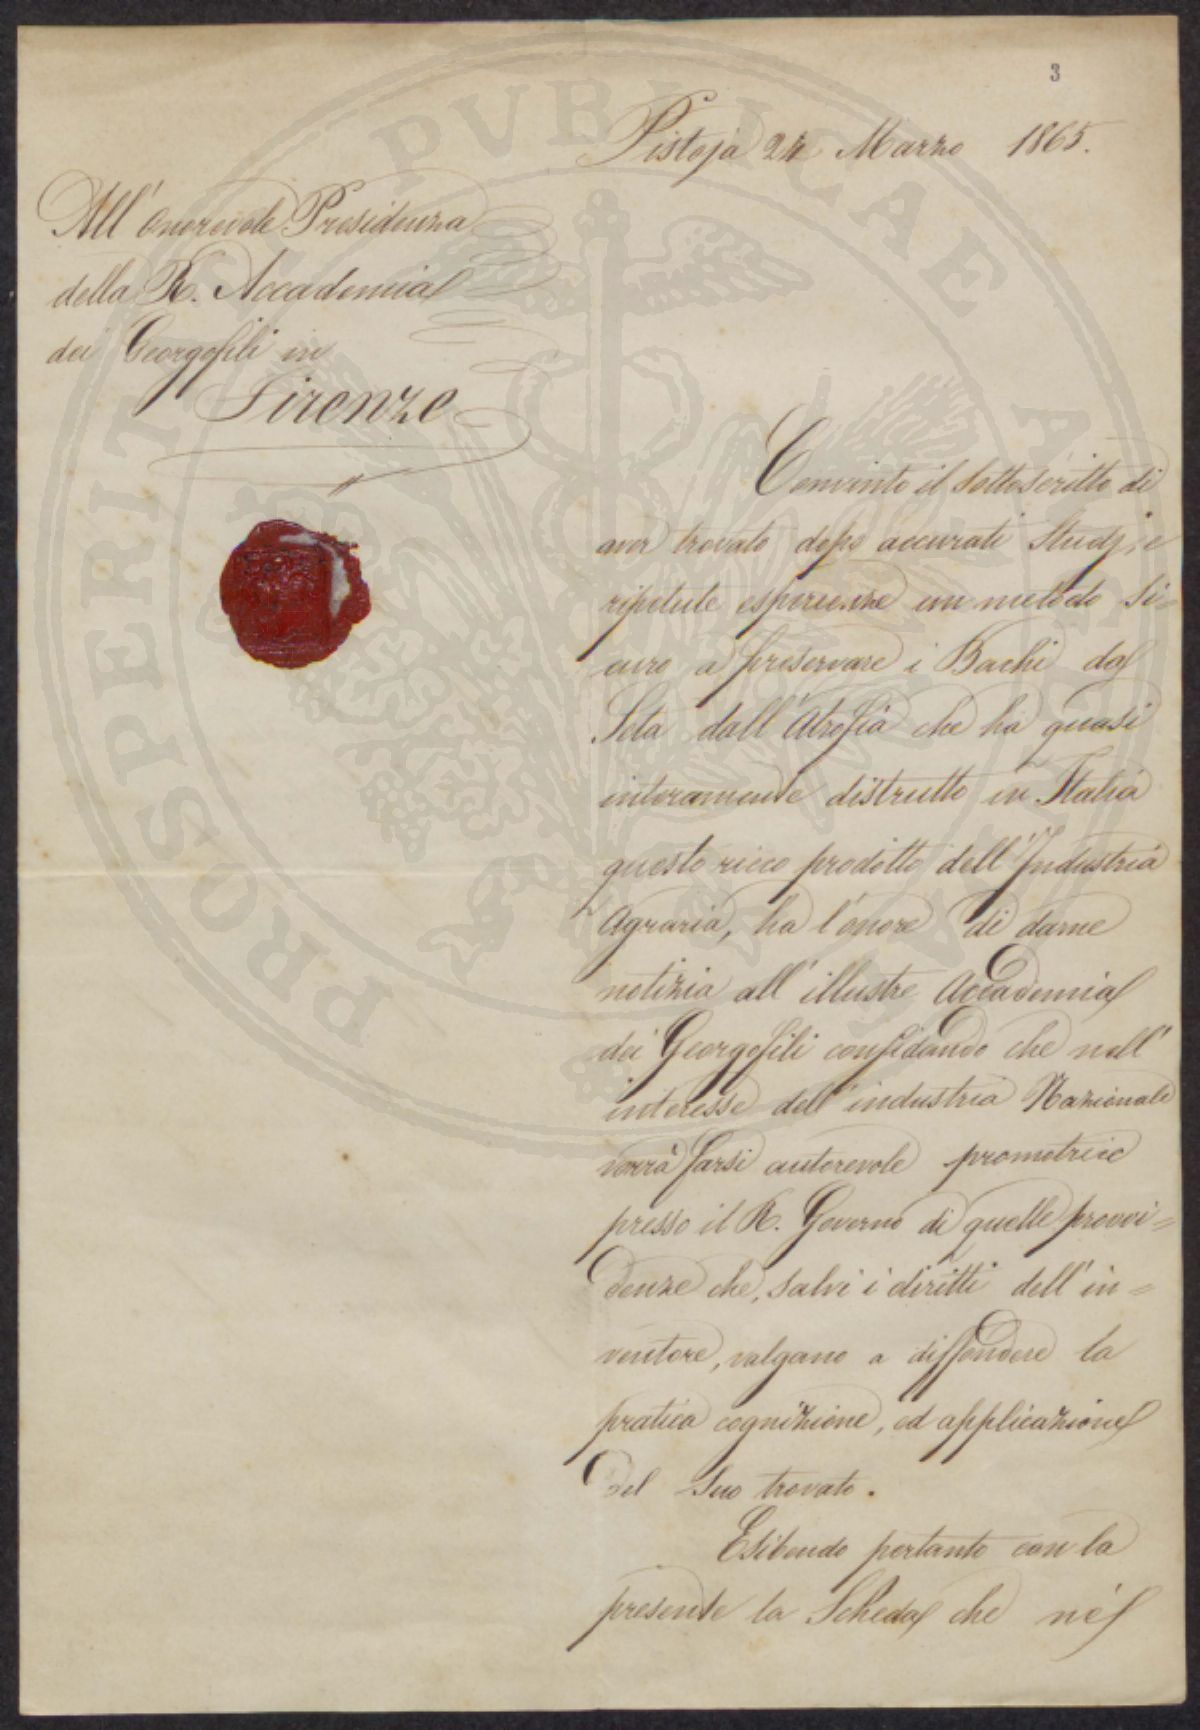 3
Pistoja 24 Marzo 1865.
All' Onorevole Presidenza
della R. Accademia
dei Georgofili in
Firenze
Convinto il Sottoscritto di
aver trovato dopo accurati Studj, e
ripetute esperienze un metodo si=
curo a preservare i Bachi da
Seta dall'Atrofia che ha quasi
interamente distrutto in Italia
questo ricco prodotto dell'Industria
Agraria, ha l'onore di darne
notizia all'illustre Accademia
dei Georgofili confidando che nell'
interesse dell'industria Nazionale
vorrà farsi autorevole promotrice
presso il R. Governo di quelle provvi=
denze che, salvi i diritti dell'in=
ventore, valgano a diffondere la
pratica cognizione, ed applicazione
del Suo trovato.
Esibendo pertanto con la
presente la Scheda che né
PROSPERITATI PVBLICAE AVGENDAE